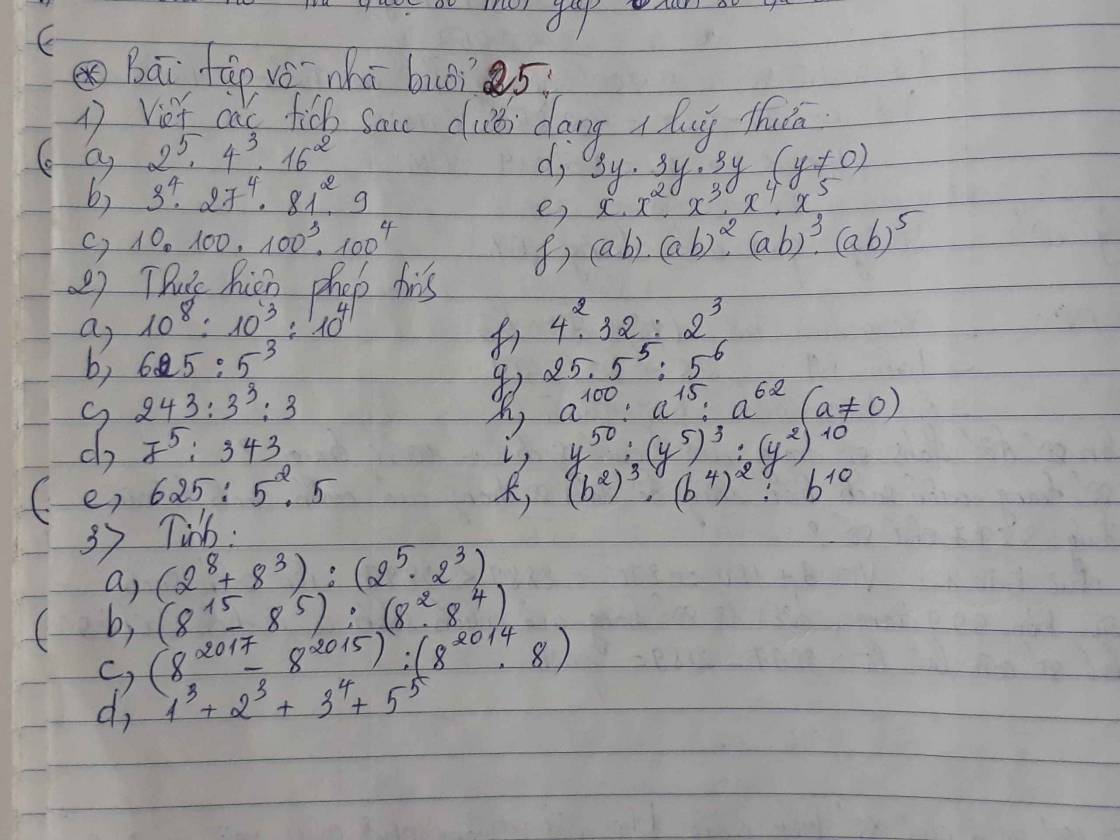 ⊛ Bài tập về nhà buổi 25:
1) Viết các tích sau dưới dạng 1 luỹ thừa:
a, 2⁵. 4³. 16² d, 3y. 3y. 3y (y≠0)
b, 3⁴. 27⁴. 81². 9 e, x. x². x³. x⁴. x⁵
c, 10. 100. 100³. 100⁴ f, (ab). (ab)². (ab)³. (ab)⁵
2) Thực hiện phép tính
a, 10⁸ : 10³ : 10⁴ f, 4². 32 : 2³
b, 625 : 5³ g, 25. 5⁵ : 5⁶
c, 243 : 3³ : 3 h, a¹⁰⁰ : a¹⁵ : a⁶² (a≠0)
d, 7⁵ : 343 i, y⁵⁰ : (y⁵)³ : (y²)¹⁰
e, 625 : 5². 5 k, (b²)³. (b⁴)² : b¹⁰
3> Tính:
a, (2⁸ + 8³) : (2⁵. 2³)
b, (8¹⁵ - 8⁵) : (8². 8⁴)
c, (8²⁰¹⁷ - 8²⁰¹⁵) : (8²⁰¹⁴. 8)
d, 1³ + 2³ + 3⁴ + 5⁵